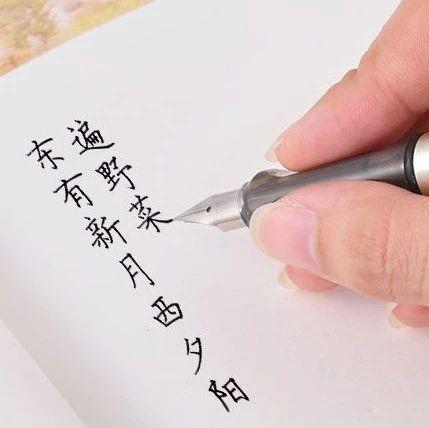 东有新月西夕阳
遍野菜